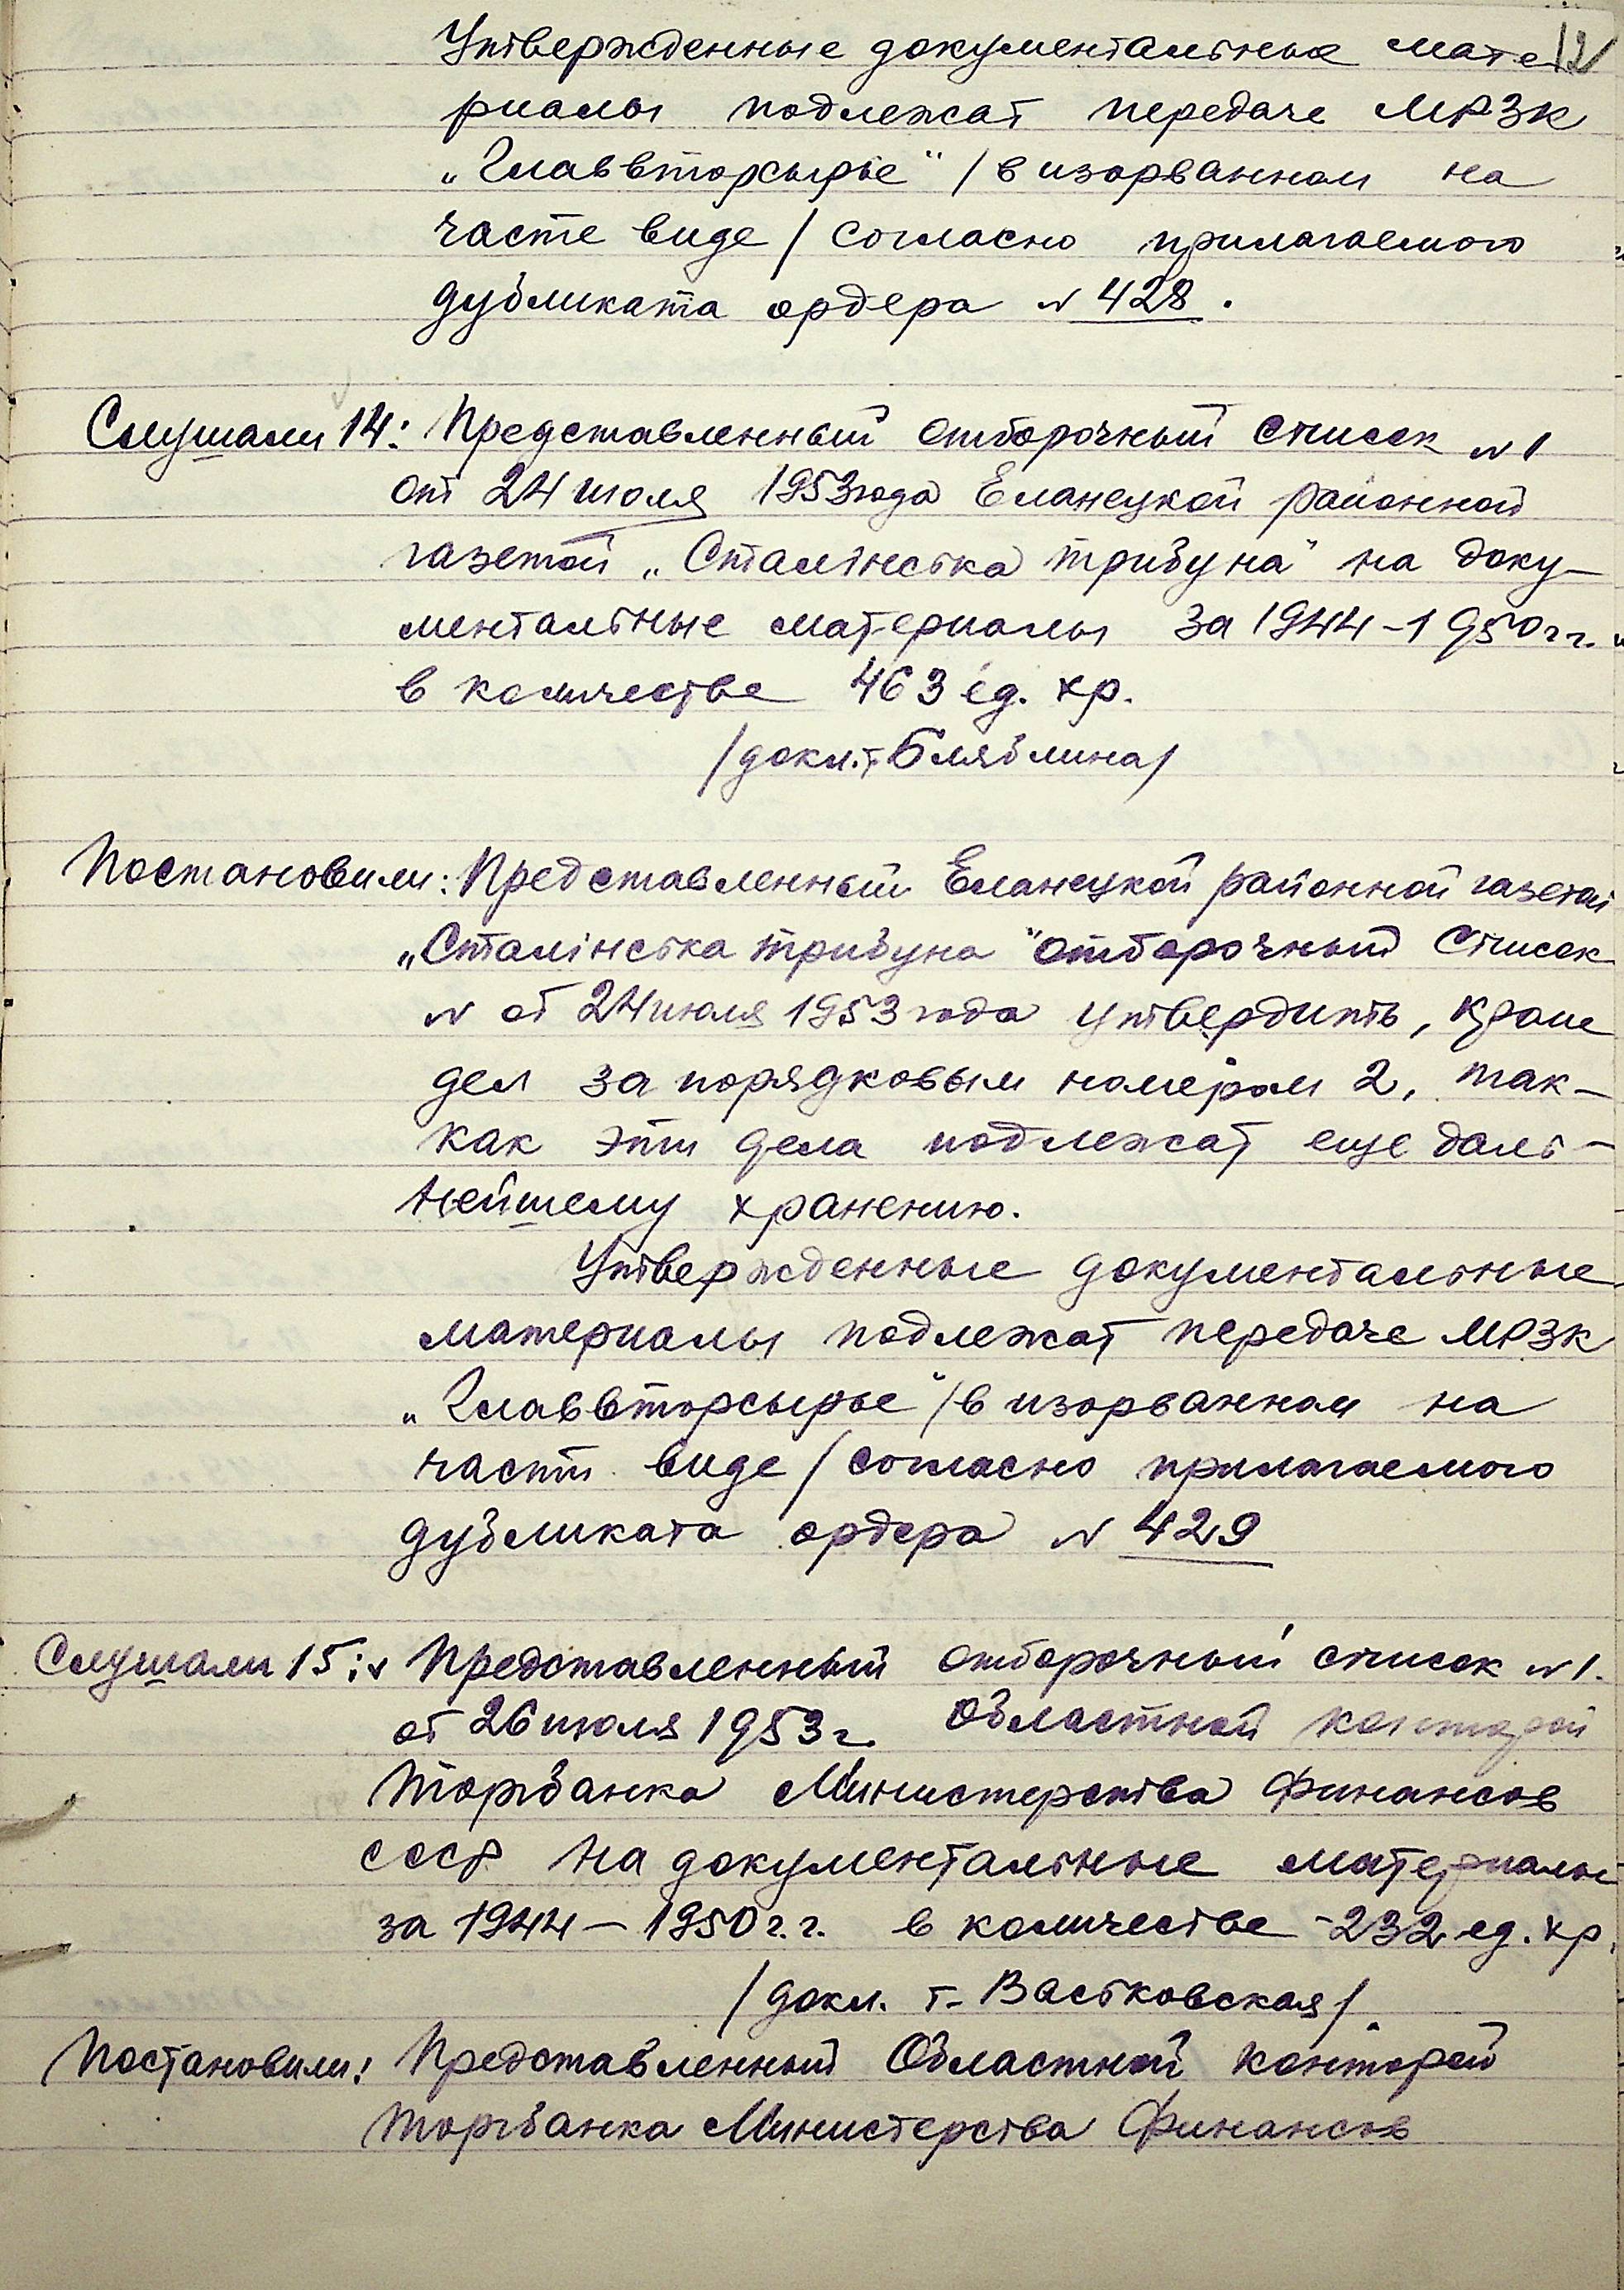 12
Утвержденные документальные мате
риалы подлежат передаче МРЗК
„Главвторсырье" /в изорванном на
части виде/ согласно прилагаемого
дубликата ордера N 428.
Слушали 14: Представленный отборочный список N 1
от 24 июля 1953 года Еланецкой районной
газетой „Сталінська трибуна" на доку-
ментальные материалы за 1944-1950 г г.
в количестве 463 ед. хр.
/докл. т. Бляблина/
Постановили: Представленный Еланецкой районной газетой
„Сталінська трибуна" отборочный список
N от 24 июля 1953 года утвердить, кроме
дел за порядковым номером 2, так-
как эти дела подлежат еще даль-
нейшему хранению.
Утвержденные документальные
материалы подлежат передаче МРЗК
„Главвторсырье" /в изорванном на
части виде/ согласно прилагаемого
дубликата ордера N 429
Слушали 15: Представленный отборочный список N 1.
от 26 июля 1953 г. Областной конторой
Торгбанка Министерства Финансов
СССР на документальные материалы
за 1944-1950 г.г. в количестве - 232 ед. хр.
/докл. т. Васьковская/.
Постановили: Представленный Областной конторой
Торгбанка Министерства Финансов